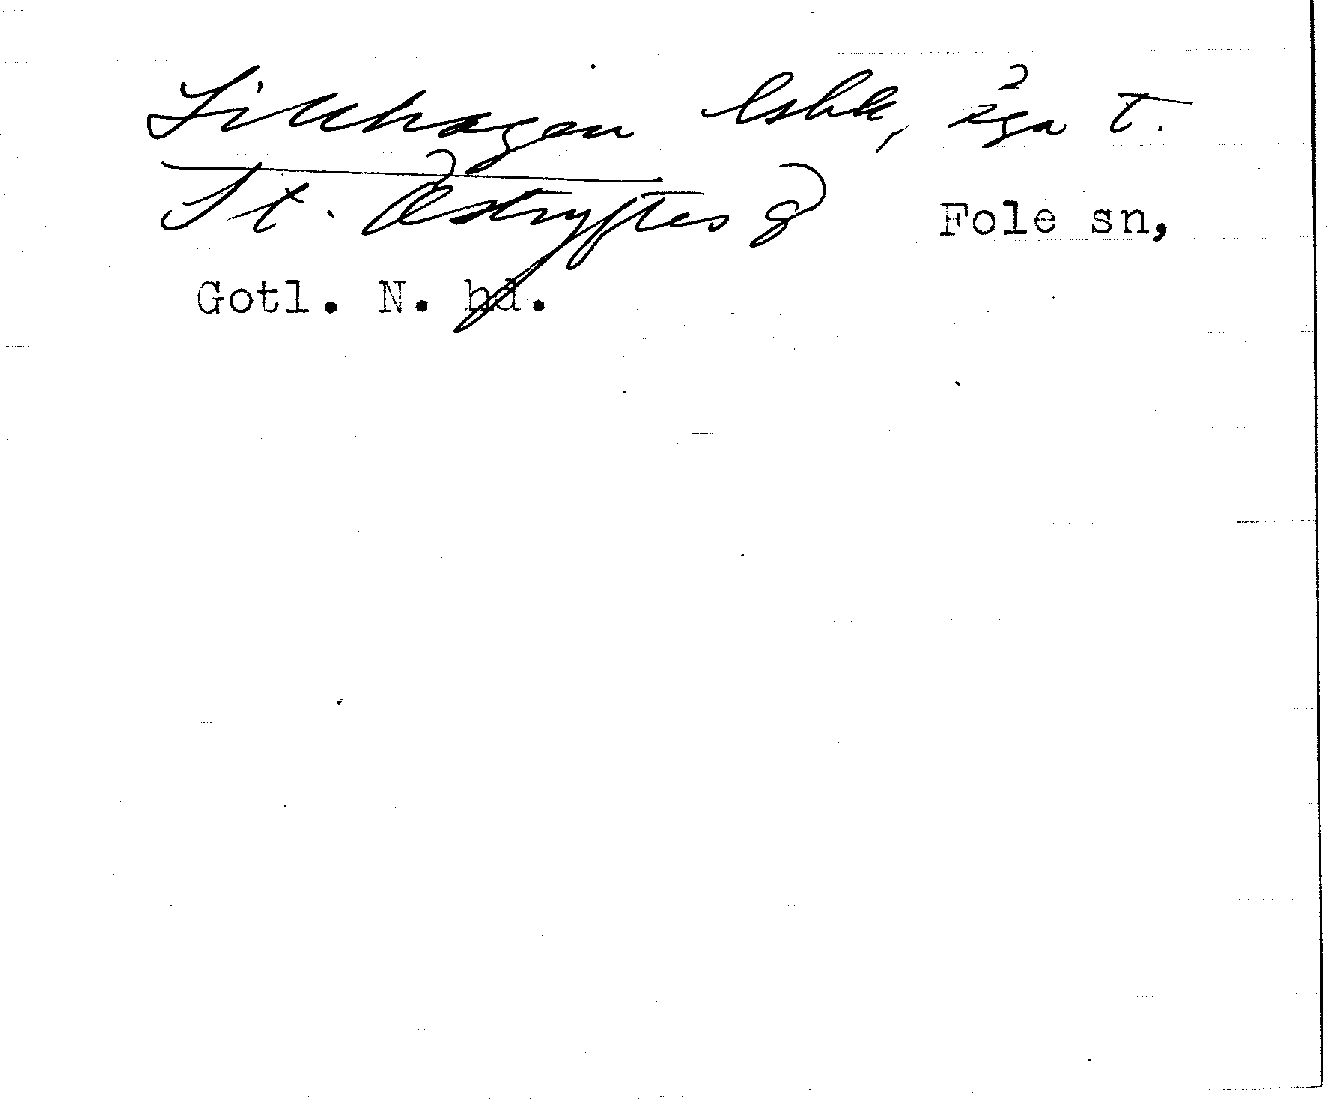 Lillhagen lshk, äga t.
St. Östryftes g Fole sn,
Gotl. N. hd.